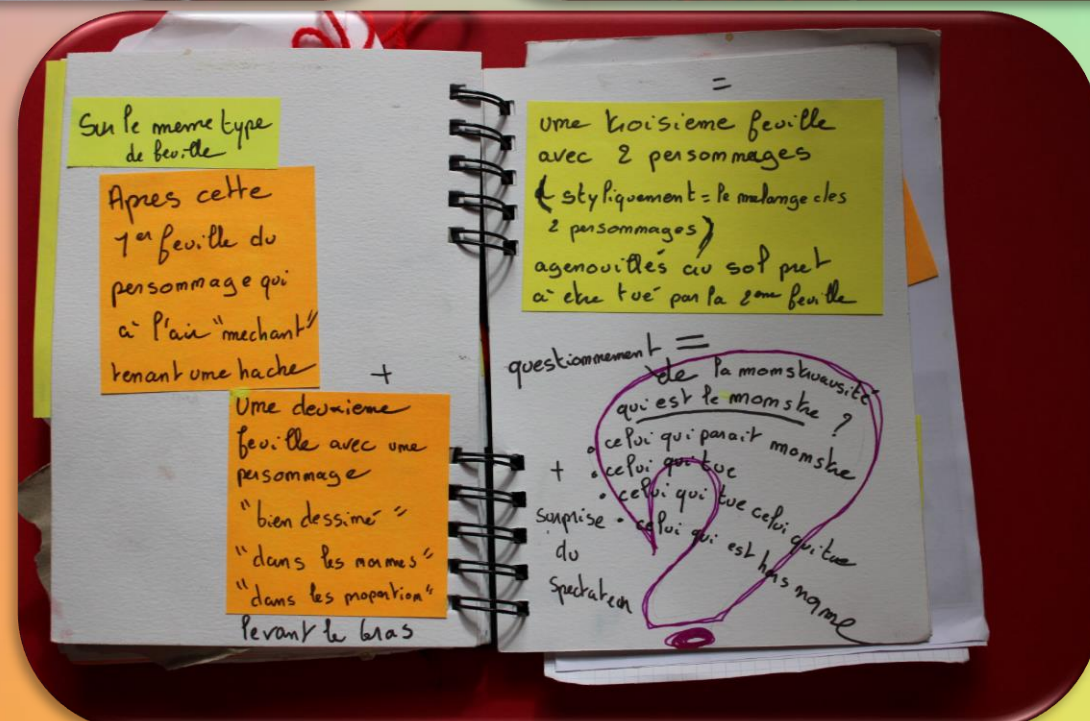 Sur le meme type
de feuille
Apres cette
1er feuille du
personnage qui
à l'air "mechant"
tenant une hache
+
Une deuxieme
feuille avec une
personnage
"bien dessiné"
"dans les normes"
"dans les proportion"
levant le bras
=
une troisieme feuille
avec 2 personnages
(styliquement = le melange des
2 personnages)
agenouillés au sol pret
à etre tué par la 2eme feuille
=
questionnement de la monstruausité
qui est le monstre ?
• celui qui parait monstre
• celui qui tue
• celui qui tue celui qui tue
• celui qui est hors norme
+
surprise
du
spectateur